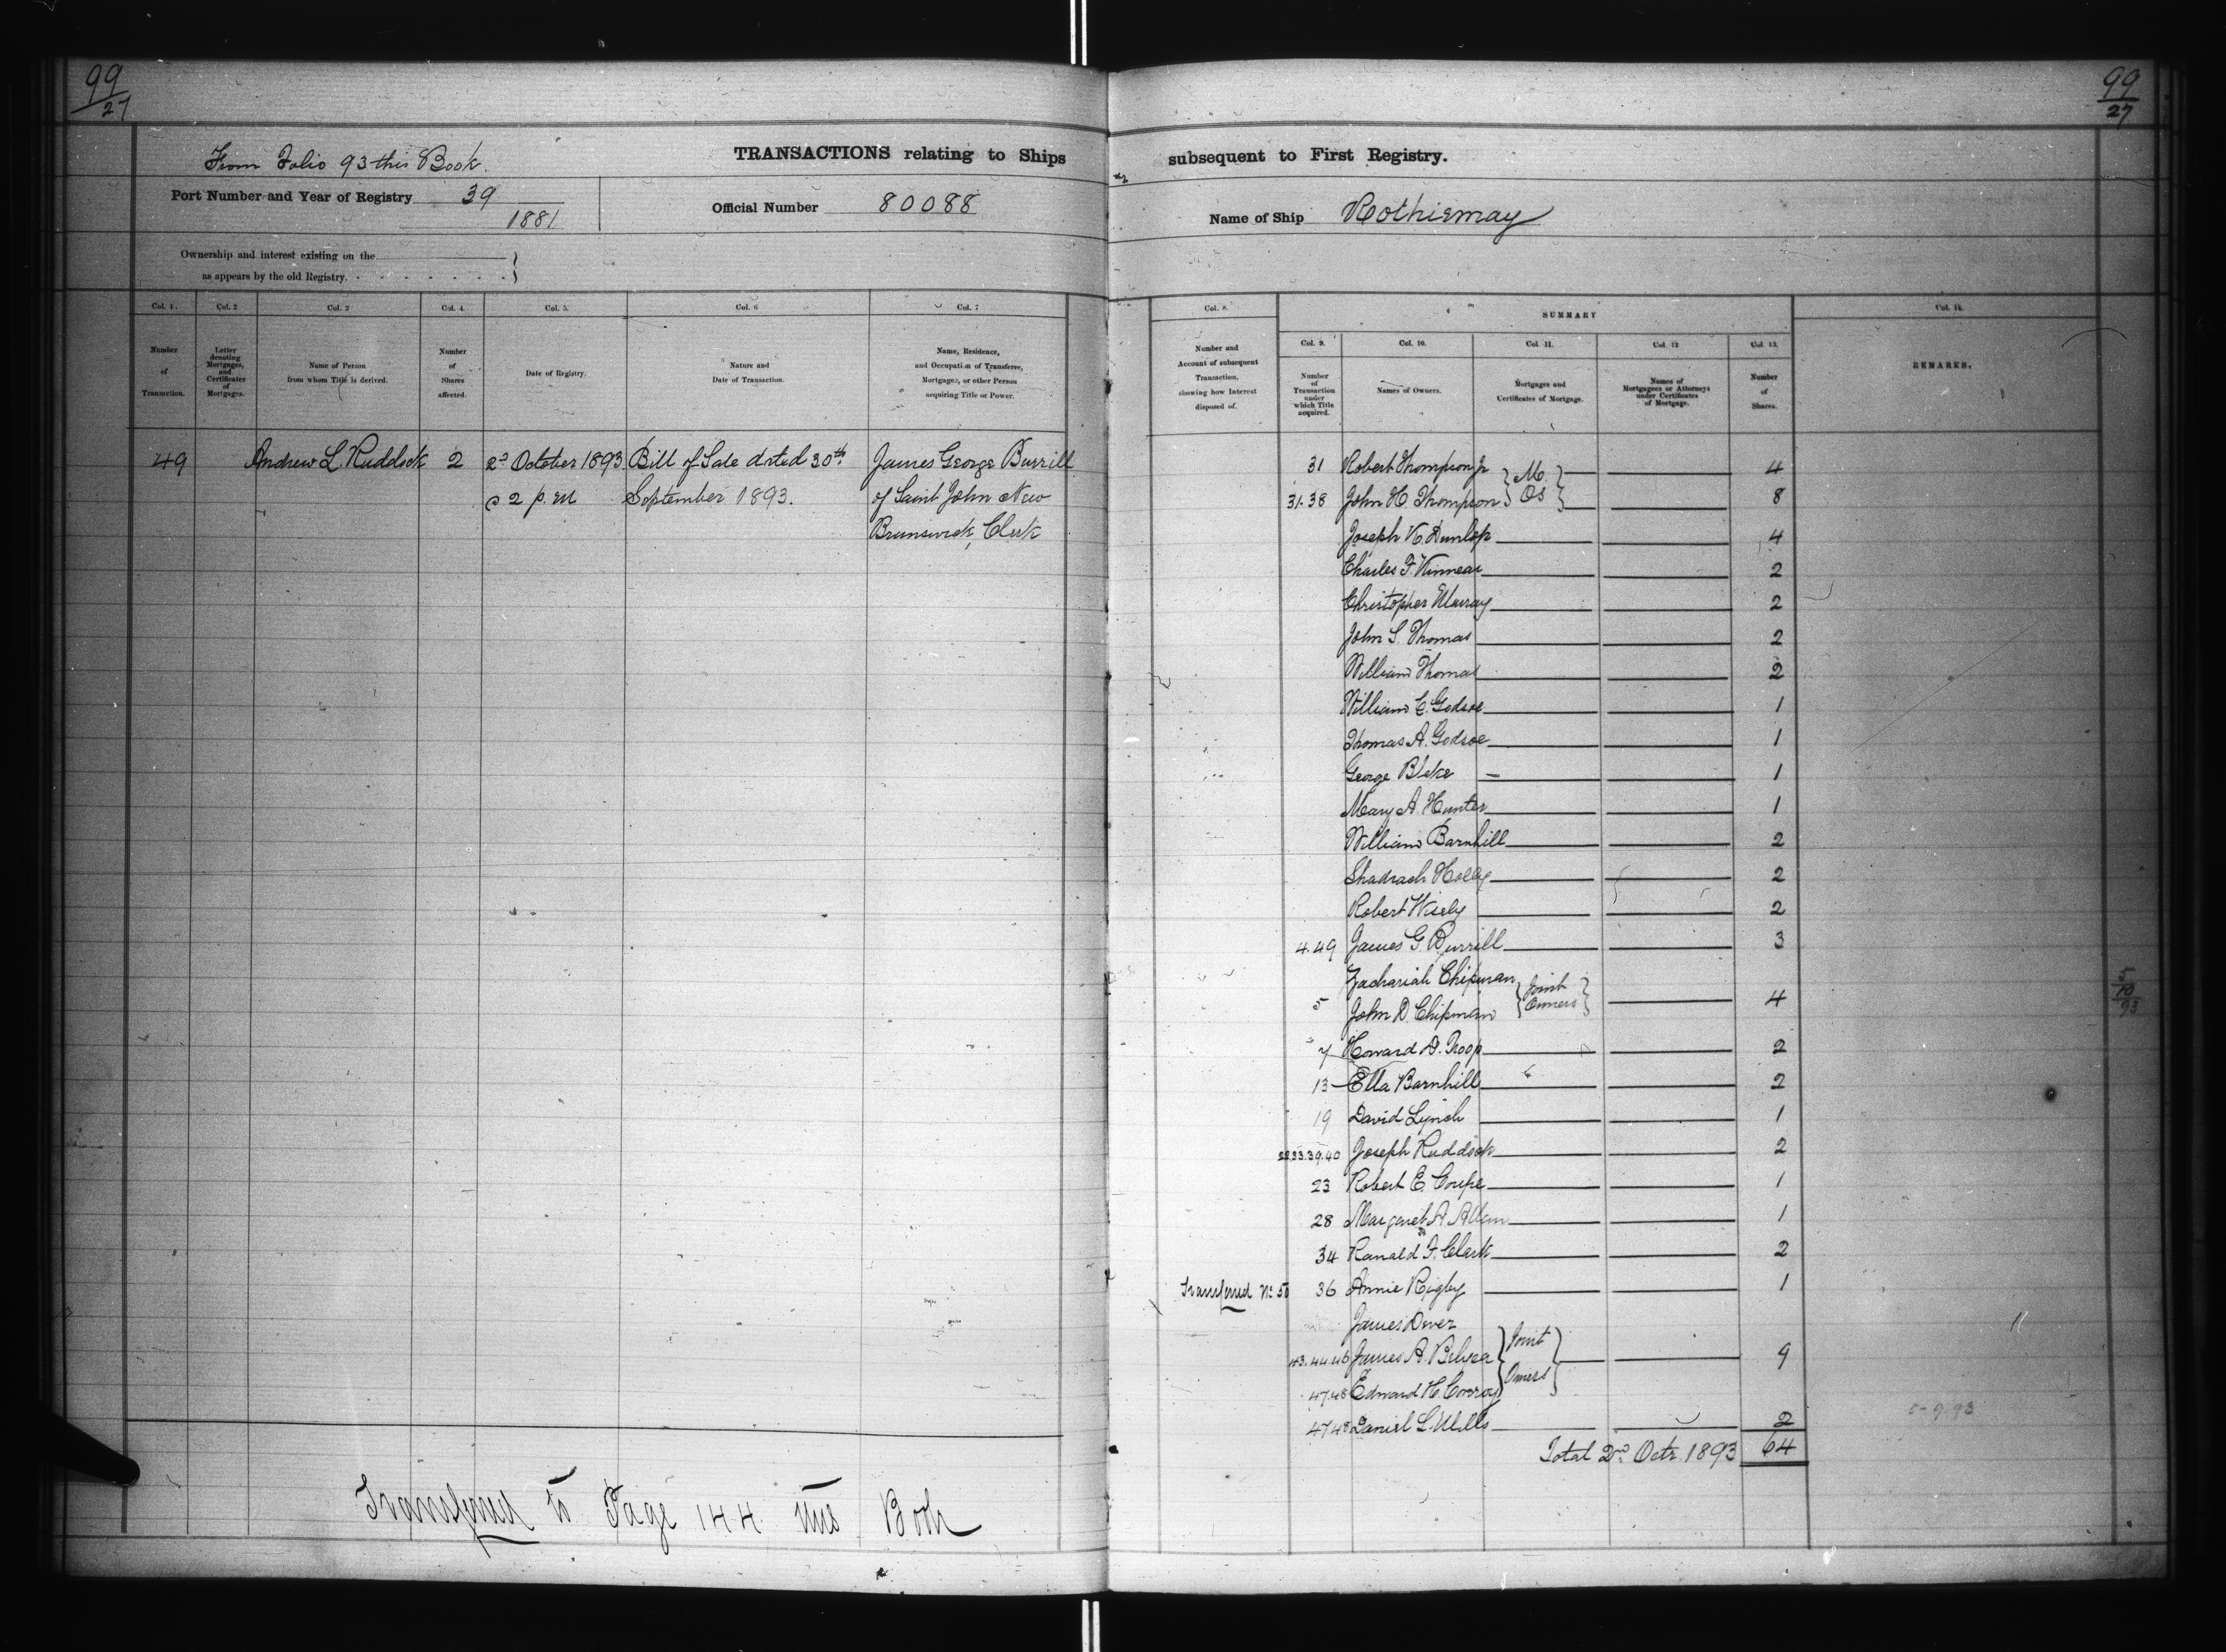 99
27
From Folio 93 this Book.
TRANSACTIONS relating to Ships
Port Number and Year of Registry 39
1881
Official Number 80088
Ownership and interest existing on the
as appears by the old Registry.
Col. 1. Col. 2 Col. 3 Col. 4 Col. 5. Col. 6 Col. 7
Number of Transaction.
Letter denoting Mortgages, and Certificates of Mortgages.
Name of Person from whom Title is derived.
Number of Shares affected.
Date of Registry.
Nature and Date of Transaction.
Name, Residence, and Occupation of Transferee, Mortgagee, or other Person acquiring Title or Power.
49 Andrew L. Ruddock 2 2d October 1893 Bill of Sale dated 30th James George Burrill
2 p.m September 1893. of Saint John New
Brunswick, Clerk
Transferred to Page 144 this Book
99
27
subsequent to First Registry.
Name of Ship Rothiemay
Col. 8. SUMMARY Col. 14.
Number and Account of subsequent Transaction, showing how Interest disposed of.
Col. 9. Col. 10. Col. 11. Col. 12 Col. 13.
Number of Transaction under which Title acquired.
Names of Owners.
Mortgages and Certificates of Mortgage.
Names of Mortgagees or Attorneys under Certificates of Mortgage.
Number of Shares.
REMARKS.
31 Robert Thompson Jr M. 4
31.38 John H. Thompson Os 8
Joseph K. Dunlop 4
Charles F. Kinnear 2
Christopher Murray 2
John S. Thomas 2
William Thomas 2
William C. Godsoe 1
Thomas A. Godsoe 1
George Blake 1
Mary A. Hunter 1
William Barnhill 2
Shadrach Holly 2
Robert Wisely 2
4.49 James G. Burrill 3
Zachariah Chipman Joint
5 John D. Chipman Owners 4
7 Howard D. Troop 2
13 Ella Barnhill 2
19 David Lynch 1
33.39.40 Joseph Ruddock 2
23 Robert E. Coupe 1
28 Margaret A. Allan 1
34 Ranald F. Clark 2
Transferred No 50 36 Annie Rigby 1
James Dever Joint
43.44.46 James A. Belyea 9
47.48 Edward H. Conroy Owners
47.48 Daniel L. Mills 2
Total 2nd Octr 1893 64